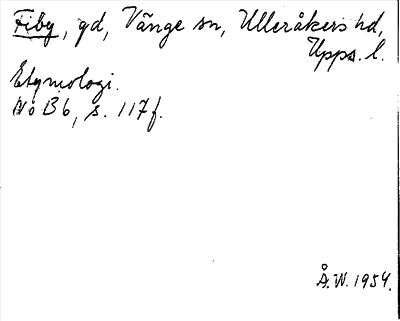 Fiby, gd, Vänge sn, Ulleråkers hd,
Upps. l.
Etymologi.
No B6, s. 117f.
Å.W. 1954.